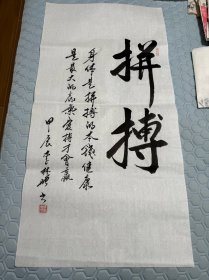 拼搏
身体是拼搏的本钱健康
是最大的底气爱拼才会赢
甲辰李林
书